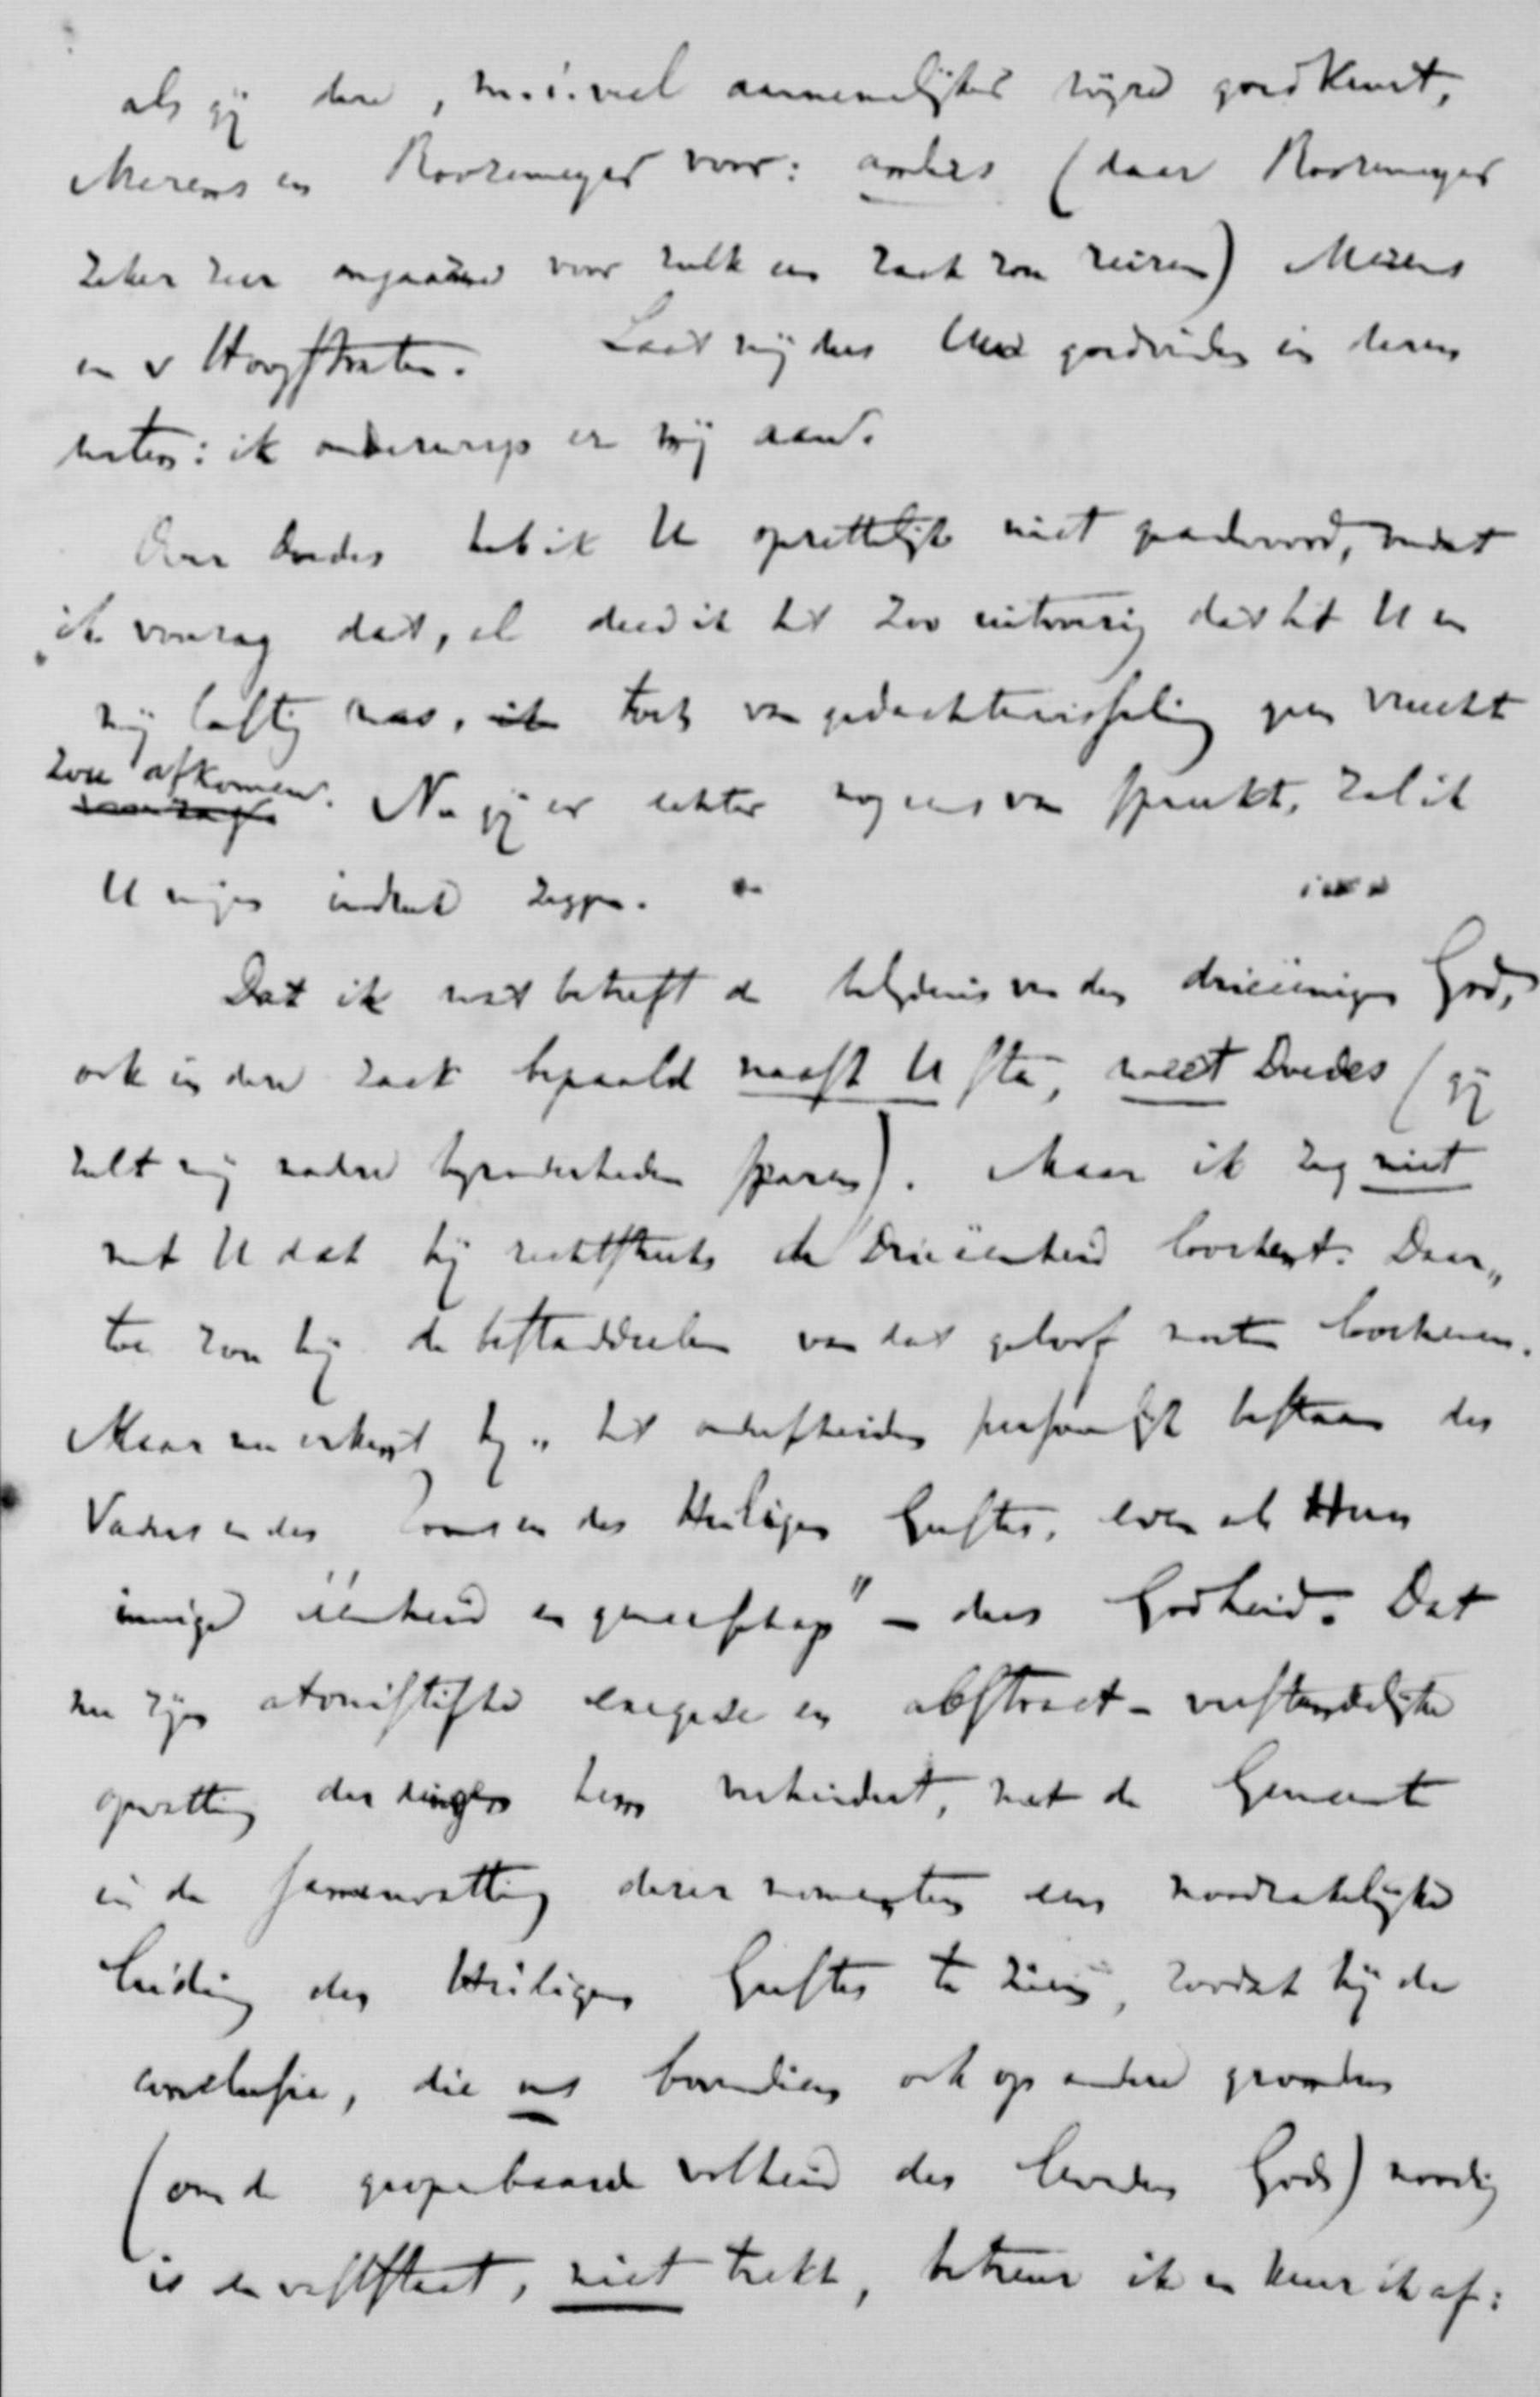 als gij deze, m.i. veel aannemelijker wijze goedkeurt,
Merens en Roozemeyer voor: anders (daar Roozemeyer
zeker zeer ongaarne voor zulk een zaak zou reizen) Merens
en v Hoogstraten. Laat mij dus Uw goedvinden in dezen
weten: ik onderwerp er mij aan.
Over Doedes heb ik U opzettelijk niet geantwoord, omdat
ik voorzag dat, al deed ik het zoo uitvoerig dat het U en
mij lastig was, toch van gedachtenwisseling geen vrucht
zou afkomen. Nu gij er echter nog eens van spreekt, zal ik
U mijn indruk zeggen.
Dat ik wat betreft de belijdenis van den drieëenigen God,
ook in deze zaak bepaald naast U sta, weet Doedes (gij
zult mij nadere bijzonderheden sparen). Maar ik zeg niet
met U dat hij rechtstreeks de Drieëenheid loochent. Daar„
toe zou hij de bestanddeelen van dat geloof moeten loochenen.
Maar nu erkent hij „het onderscheiden persoonlijk bestaan des
Vaders en des Zoons en des Heiligen Geestes, even als Hun
innige éénheid en gemeenschap" – dus Godheid. Dat
nu zijn atomistische exegese en abstract-verstandelijke
opvatting der dingen hem verhindert, met de Gemeente
in de samenvatting dezer momenten een noodzakelijke
leiding des Heiligen Geestes te zien, zoodat hij de
conclusie, die ons bovendien ook op andere gronden
(om de geopenbaarde volheid des levenden Gods) noodig
is en vaststaat, niet trekt, betreur ik en keur ik af: